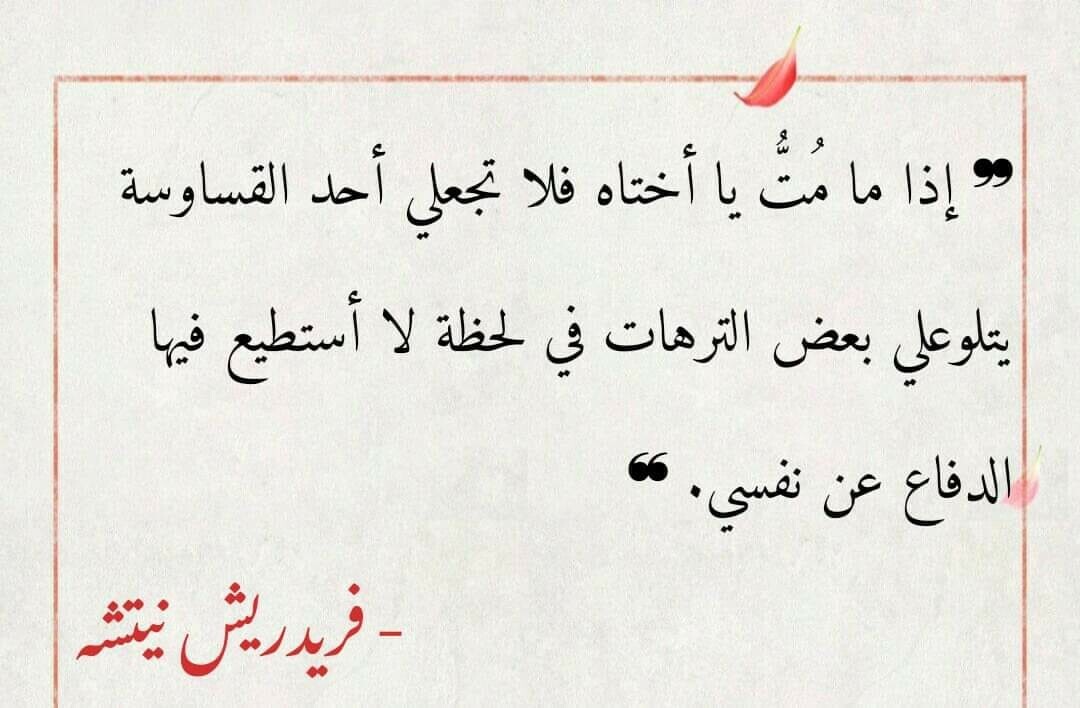 ❞ إذا ما مُتُّ يا أختاه فلا تجعلي أحد القساوسة
يتلوعلي بعض الترهات في لحظة لا أستطيع فيها
الدفاع عن نفسي. ❝
- فريدريش نيتشه